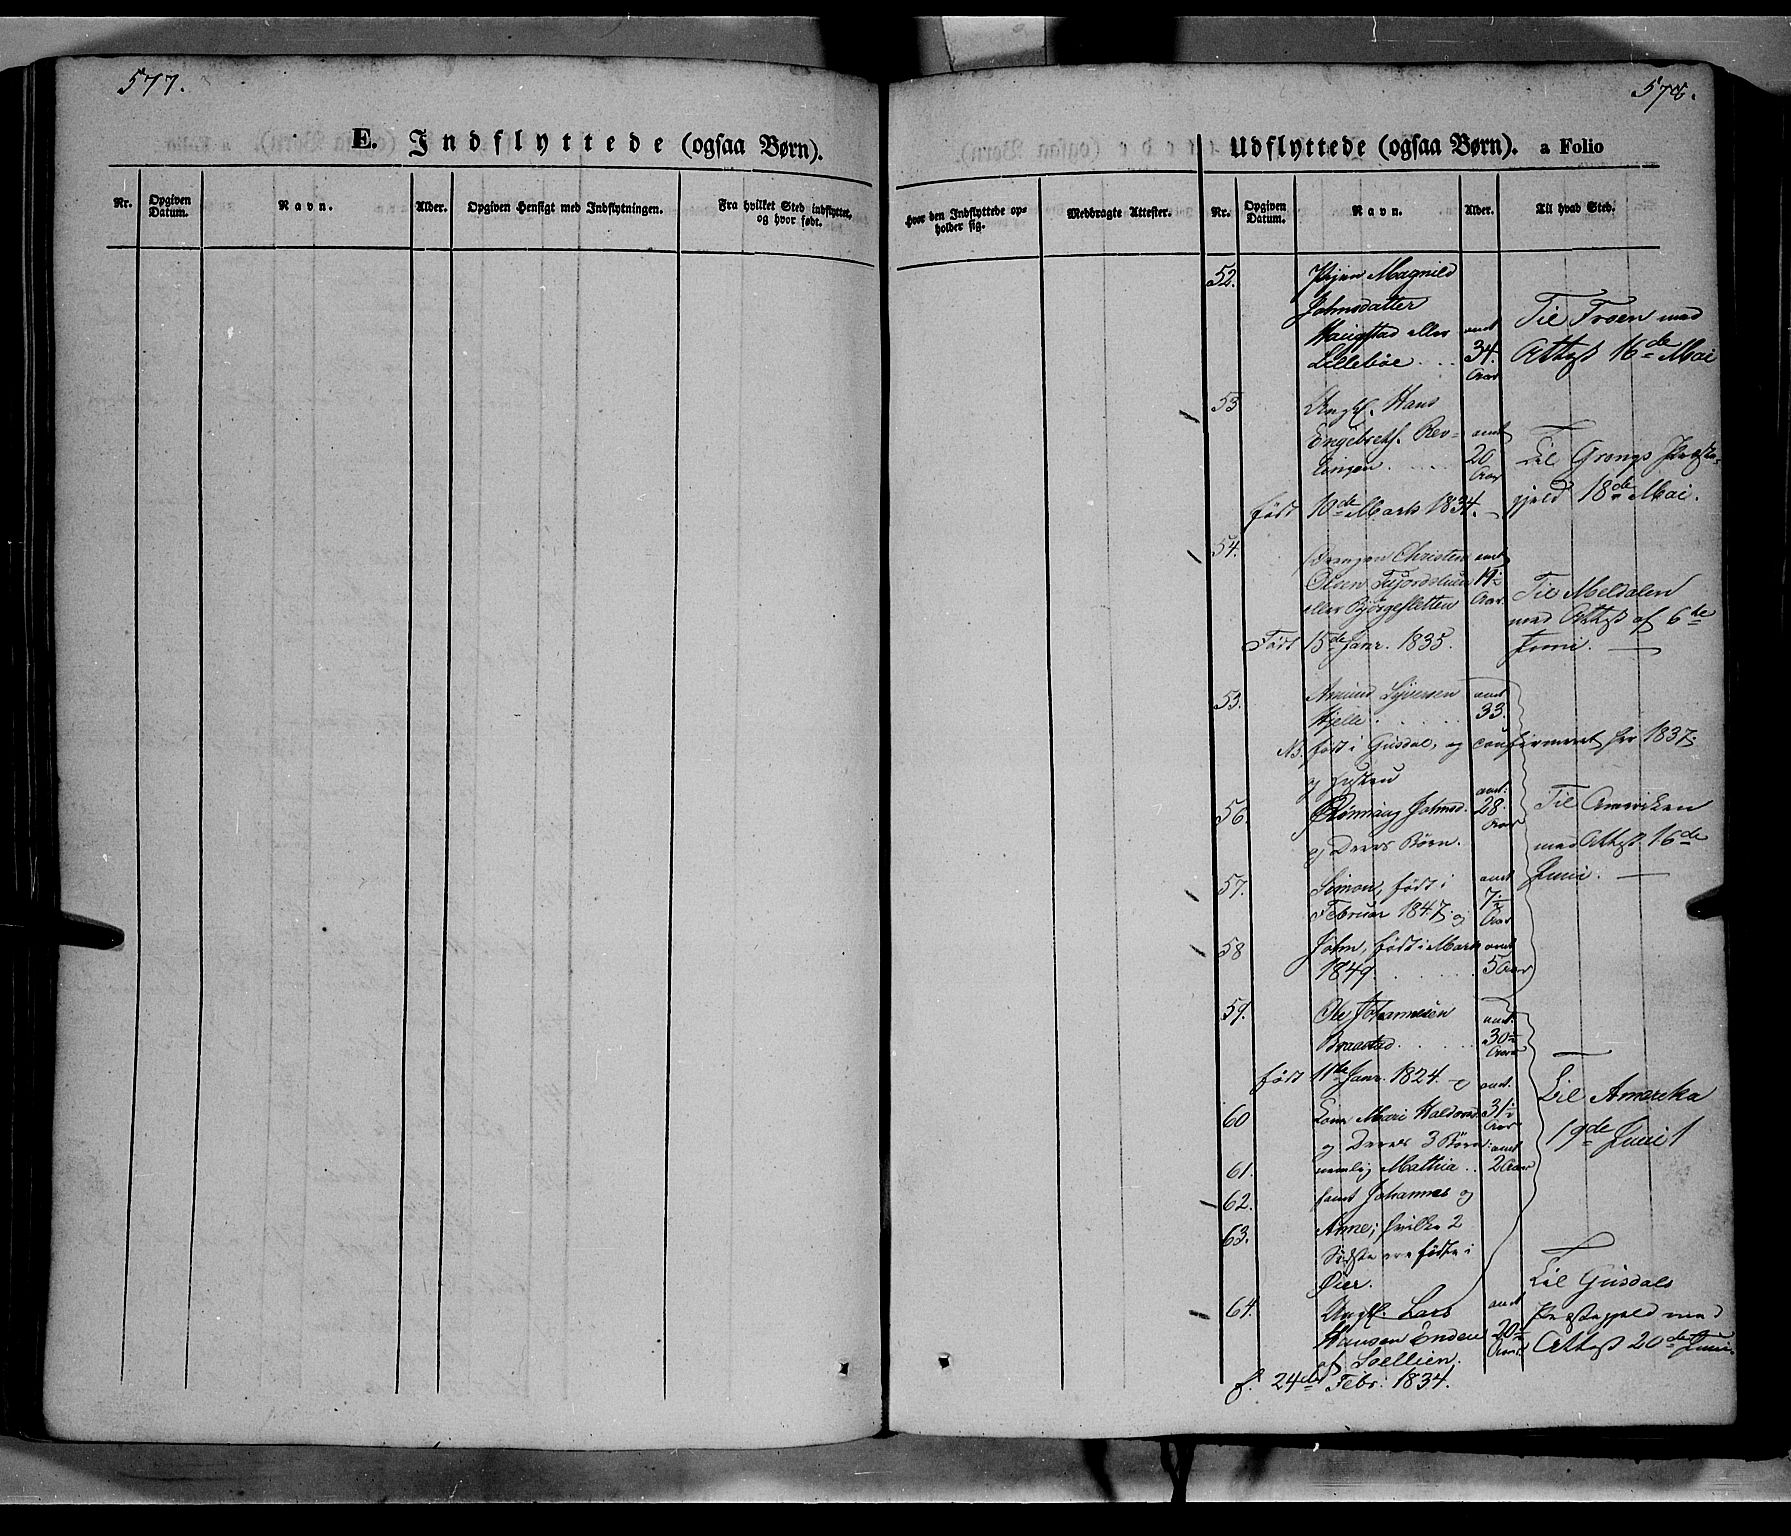 577.
E. Indflyttede (ogsaa Børn).
Nr.
Opgiven Datum.
Navn.
Alder.
Opgiven Hensigt med Indflytningen.
Fra hvilket Sted indflyttet, og hvor født.
578.
Udflyttede (ogsaa Børn). a Folio
Hvor den Indflyttede opholder sig.
Medbragte Attester.
Nr.
Opgiven Datum.
Navn.
Alder.
Til hvad Sted.
52. Pigen Magnild
Johnsdatter
Haugstad eller amt
Lillebøe 34. Aar
Til Froen med
Attest 16de Mai
53 Ungk. Hans
Engebreths. Rev- amt
lingen 20 Aar
født 10de Marts 1834.
Til Grongs Præste-
gjeld 18de Mai.
54. Drengen Christen amt
Olsen Fjordeluen 19½
eller Bjørgesletten Aar
Født 15de Janr. 1835.
Til Meldalen
med Attest af 6te
Juni.
53. Amund Syversen amt
Hjelle 33.
NB. født i Gusdal, og confirmeret her 1837;
og Hustru
56. Rønnaug Johnsd. amt: 28. Aar
og Deres Børn.
Til Ameriken
med Attest 16de
Juni.
57. Simon, født i amt
Februar 1847; og 7½ Aar
58 John, født i Marts amt
1849. 5 Aar
59. Ole Johannesen amt.
Braastad 30½ Aar
født 11te Janr. 1824. og amt.
60 Kone Mari Haldorsd. 31½ Aar
og Deres 3 Børn: amt
61. nemlig Mathia 2 Aar
62. samt Johannes og
63. Anne; hvilke 2
Sidste ere fødte i
Øier.
Til Amerika
19de Juni
64. Ungk. Lars amt
Hansen Enden 20½
af Soellien. Aar
f. 24de Febr. 1834.
Til Gusdals
Præstegjeld med
Attest 20de Juni.